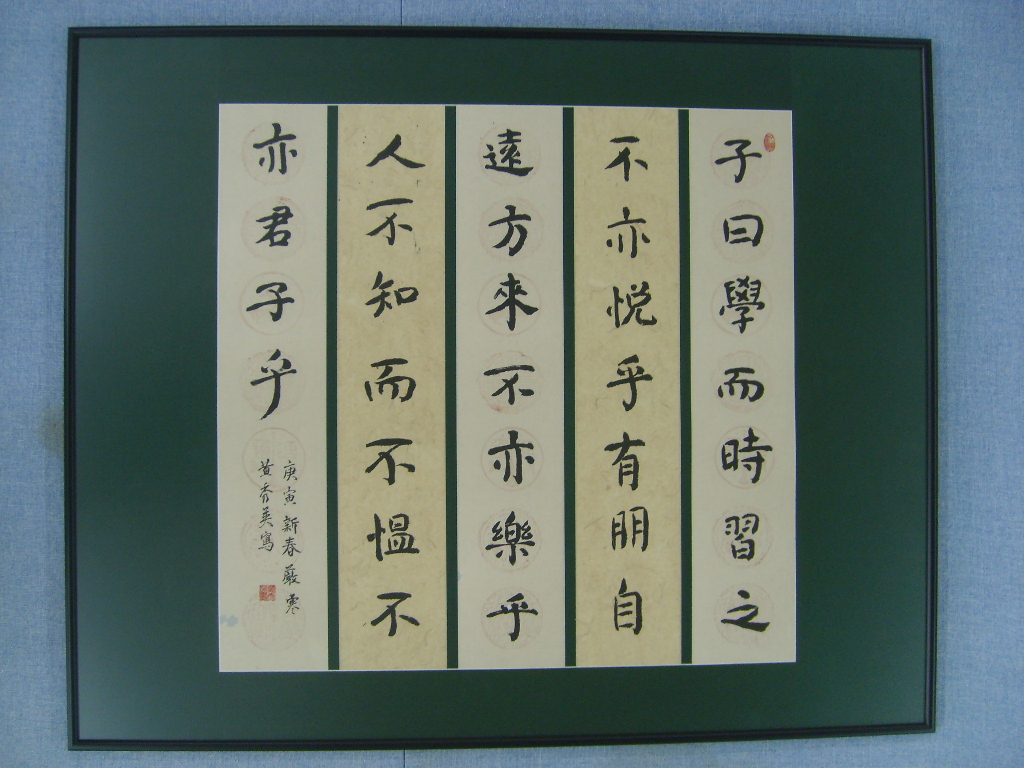 子曰學而時習之
不亦悅乎有朋自
遠方來不亦樂乎
人不知而不慍不
亦君子乎
庚寅新春嚴寒
黄秀英寫